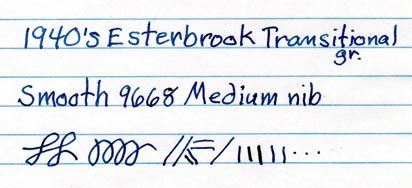 1940's Esterbrook Transitional
gr.
Smooth 9668 Medium nib